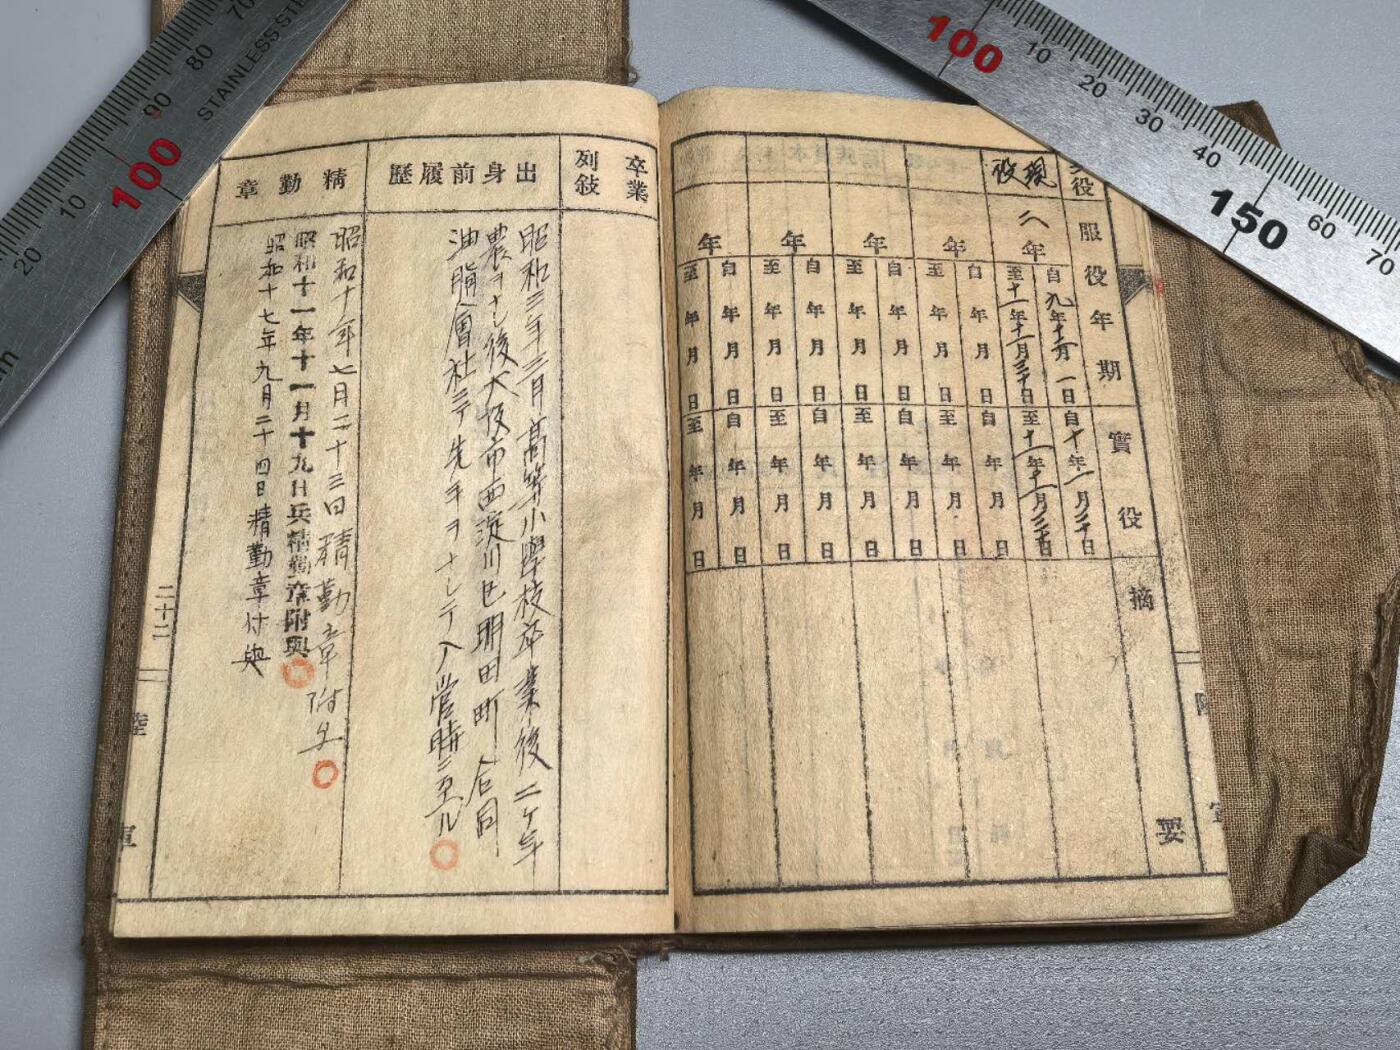 現役
服役年期
八年
自九年十二月一日
至十一年十一月三十日
年
自年月日
至年月日
年
自年月日
至年月日
年
自年月日
至年月日
年
自年月日
至年月日
實役
自十年一月二十日
至十一年十一月三十日
自年月日
至年月日
自年月日
至年月日
自年月日
至年月日
自年月日
至年月日
摘要
卒業
列敍
出身前履歷
昭和三年三月高等小學校卒業後二ヶ年
農ヲナシ後大阪市西淀川区
町合同
油脂會社ニテ先手ヲナシテ入營時ニ至ル
精勤章
昭和十年七月二十三日精勤章附与
昭和十一年十一月十九日兵精勤章附與
昭和十七年九月二十四日精勤章付與
二十二
陸軍
STAINLESS STE
70
80
90
100
10
20
100
10
20
30
40
150
60
70